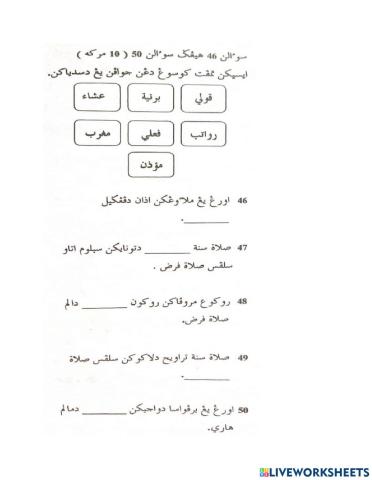 سوءالن 46 هيڠݢ سوءالن 50 ( 10 مركه )
ايسيكن تمڤت كوسوڠ دڠن جواڤن يڠ دسدياكن.
قولي برنية عشاء
رواتب فعلي مغرب
مؤذن
46 اورڠ يڠ ملاوڠكن اذان دڤڠݢيل
________.
47 صلاة سنة ________ دتونايكن سبلوم اتاو
سلڤس صلاة فرض .
48 روكوع مروڤاكن روكون ________ دالم
صلاة فرض.
49 صلاة سنة تراويح دلاكوكن سلڤس صلاة
________.
50 اورڠ يڠ برڤواسا دواجبكن ________ دمالم
هاري.
LIVEWORKSHEETS